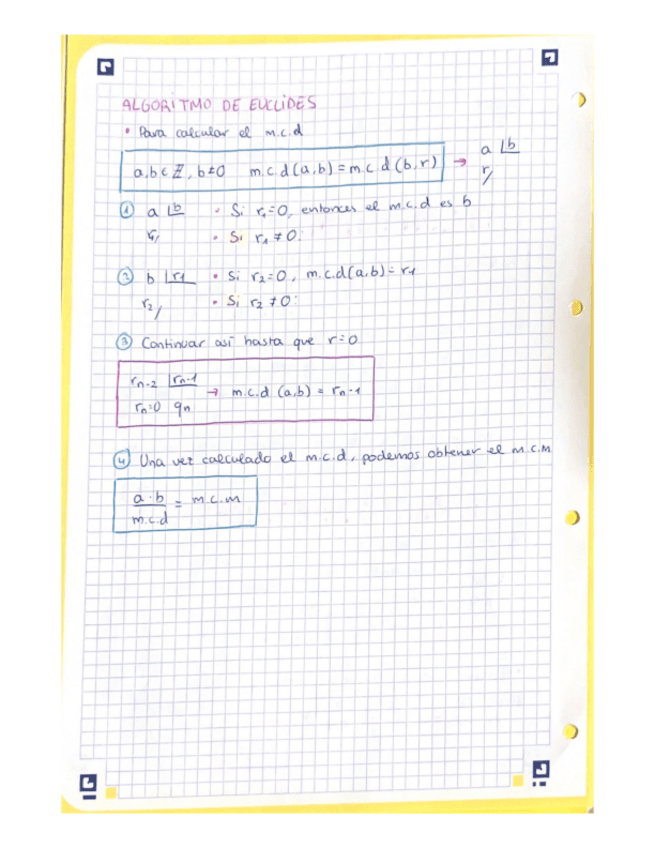 ALGORITMO DE EUCLIDES
• Para calcular el m.c.d
a,b ∈ ℤ, b≠0 m.c.d(a,b) = m.c.d(b,r) → a |b
r/
① a |b • Si r₁=0, entonces el m.c.d es b
r₁/ • Si r₁ ≠ 0:
② b |r₁ • Si r₂=0, m.c.d(a,b)= r₁
r₂/ • Si r₂ ≠ 0:
③ Continuar así hasta que r=0
rn-2 |rn-1 → m.c.d (a,b) = rn-1
rn=0 qn
④ Una vez calculado el m.c.d, podemos obtener el m.c.m
a·b / m.c.d = m.c.m